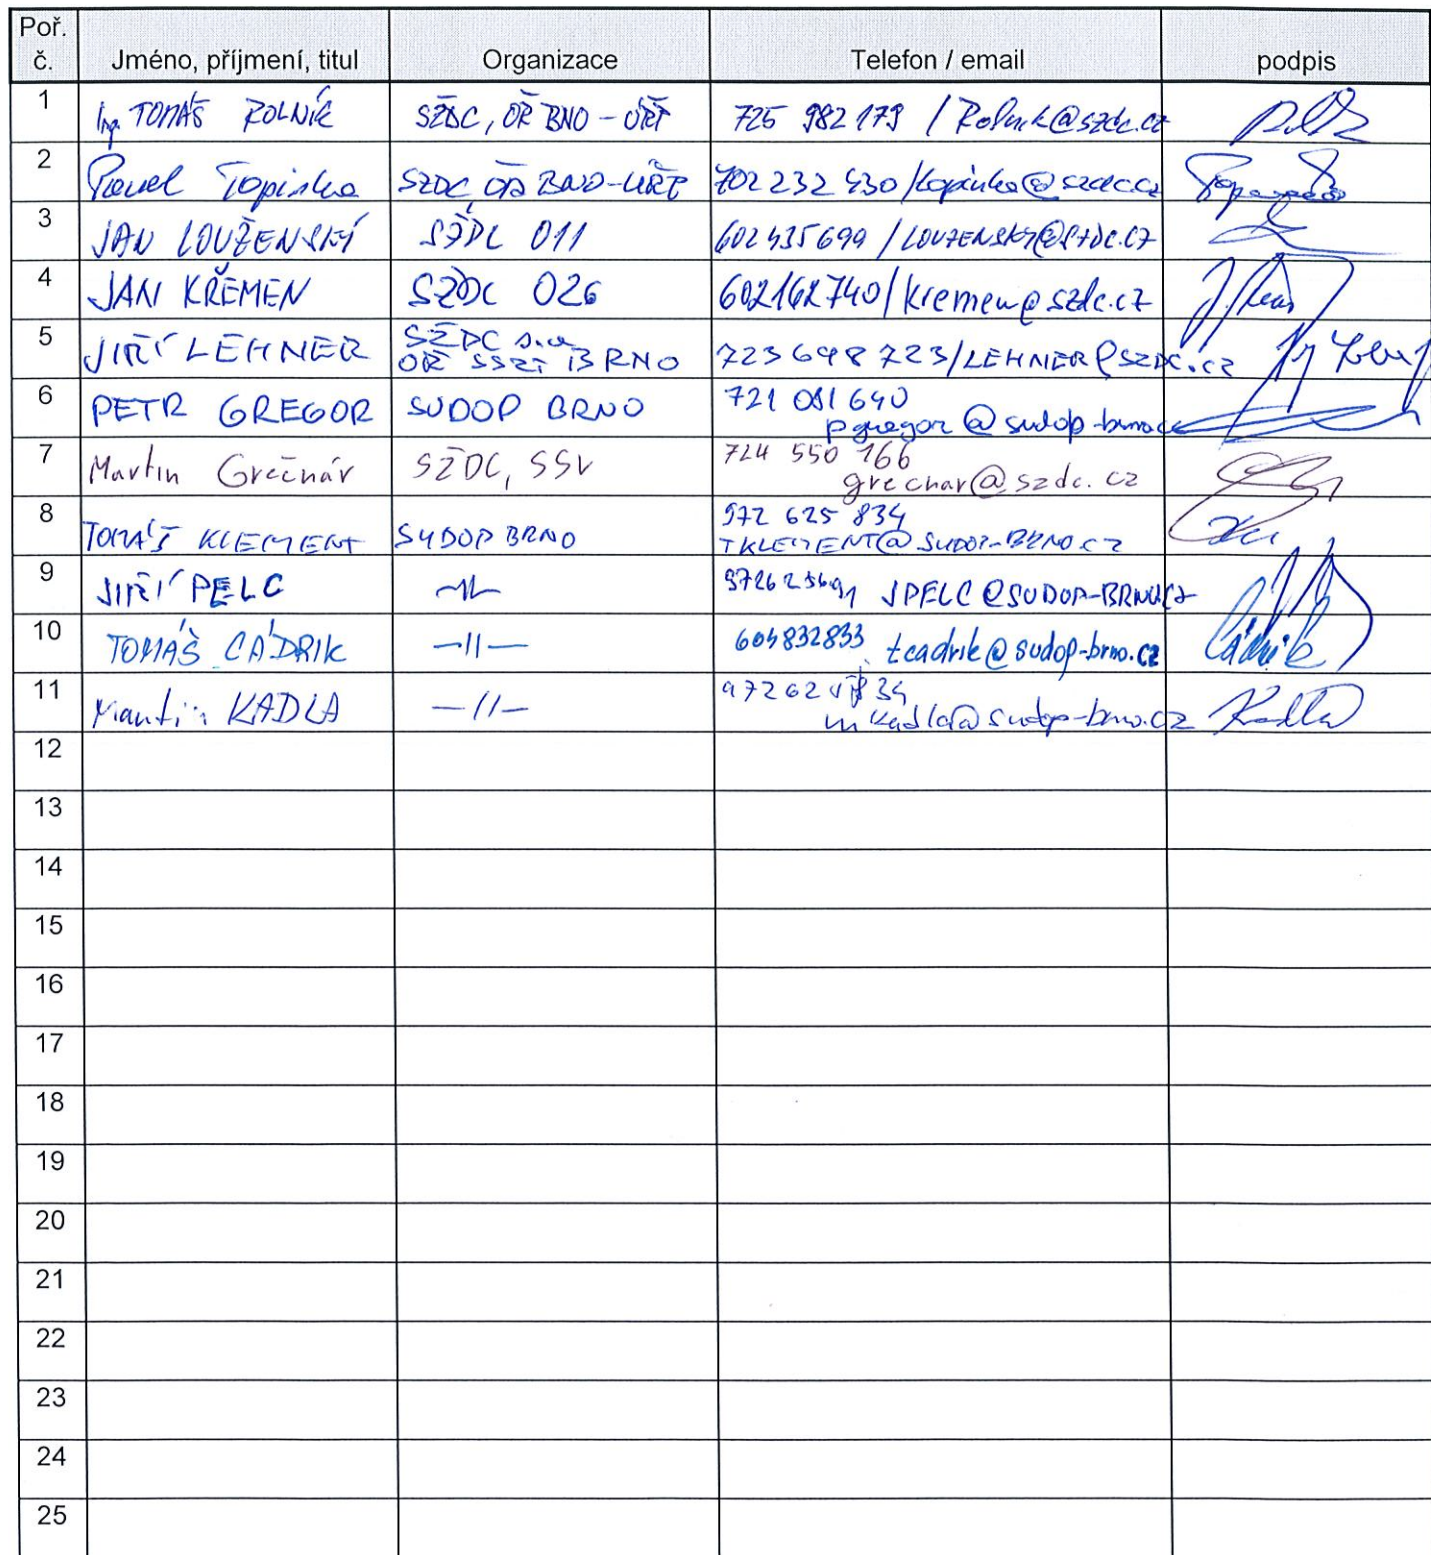 Poř. č. Jméno, příjmení, titul Organizace Telefon / email podpis
1 Ing. TOMÁŠ ROLNÍK SŽDC, OŘ BNO - ÚŘT 725 982 179 / Rolnik@szdc.cz
2 Pavel Topinka SŽDC OŘ BNO-ÚŘT 702 232 430/topinka@szdc.cz
3 JAN LOUŽENSKÝ SŽDC 011 602 435 699 / LOUZENSKY@SZDC.CZ
4 JAN KŘEMEN SŽDC 026 602162740/kremen@szdc.cz
5 JIŘÍ LEHNER SŽDC s.o. OŘ SSZT BRNO 723 698 723/LEHNER@SZDC.CZ
6 PETR GREGOR SUDOP BRNO 721 081 640
pgregor@sudop-brno.cz
7 Martin Grečnár SŽDC, SSV 724 550 166
grecnar@szdc.cz
8 TOMÁŠ KLEMENT SUDOP BRNO 972 625 834
TKLEMENT@SUDOP-BRNO.CZ
9 JIŘÍ PELC -//- JPELC@SUDOP-BRNO.CZ
10 TOMÁŠ CÁDRIK -//- 604832833 tcadrik@sudop-brno.cz Cádrik
11 Martin KADLA -//-
mkadla@sudop-brno.cz Kadla
12
13
14
15
16
17
18
19
20
21
22
23
24
25